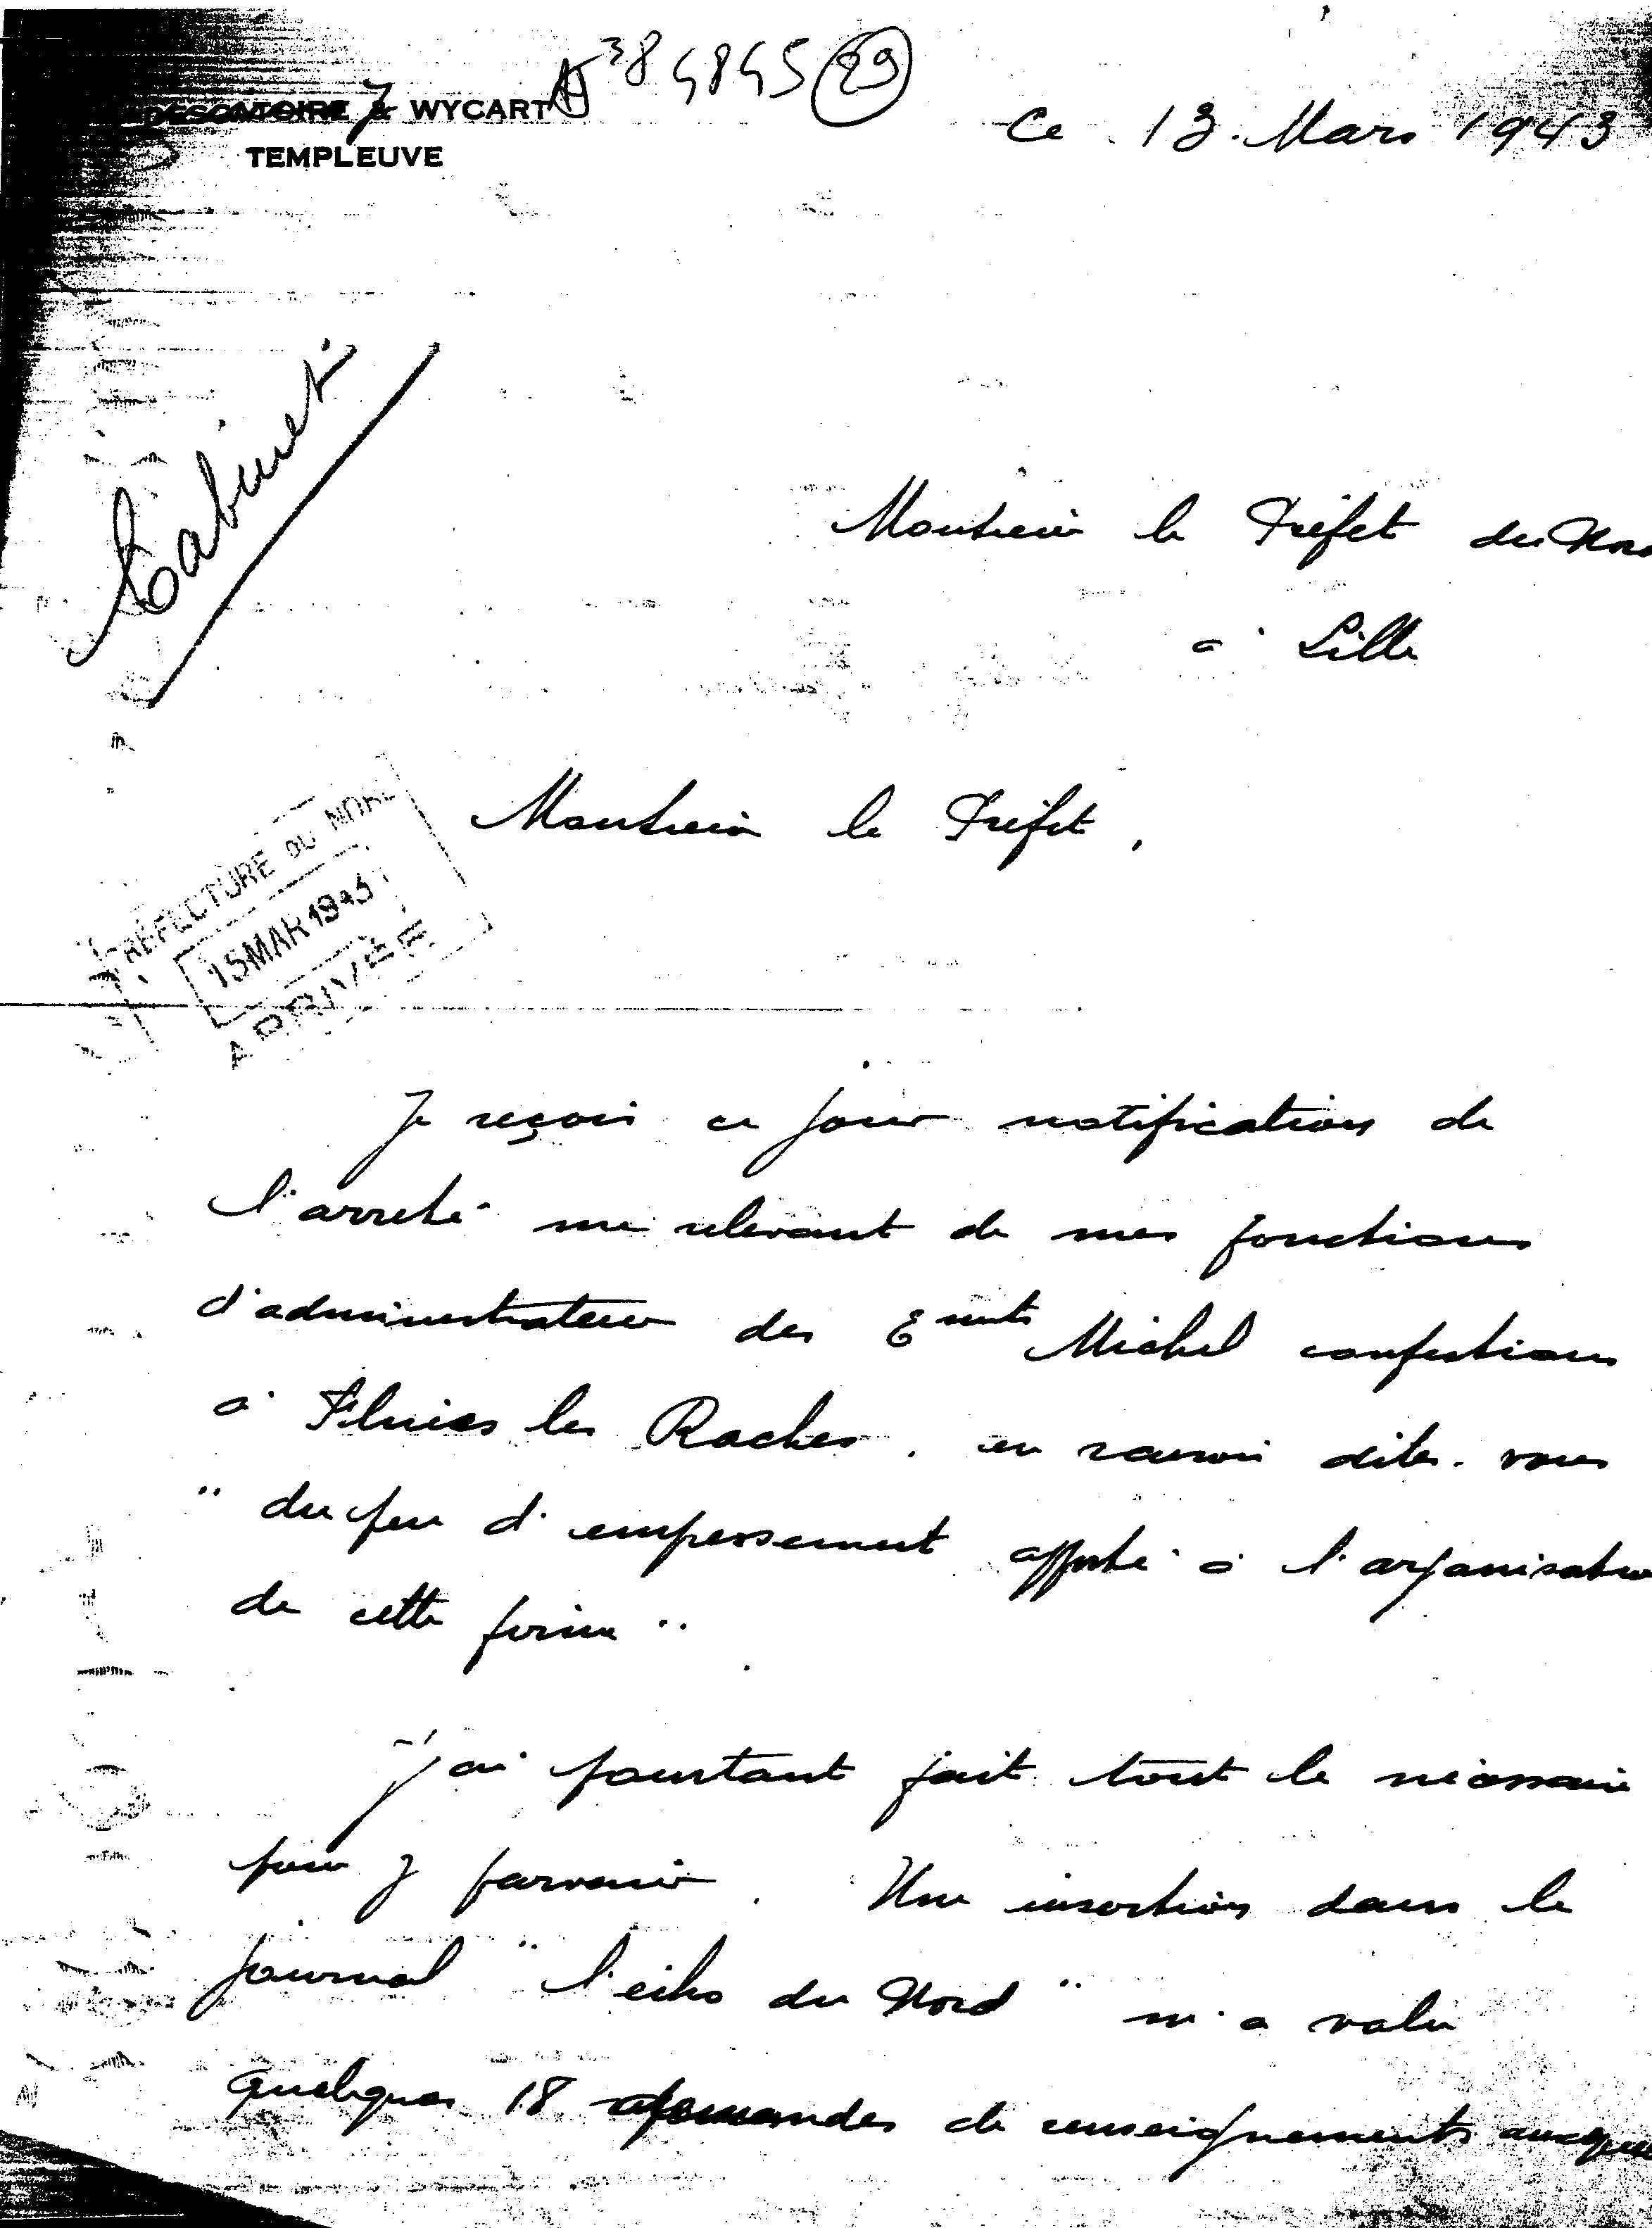 DESCATOIRE & WYCART
TEMPLEUVE
384845 (29)
Ce 13. Mars 1943
Cabinet
Monsieur le Préfet du Nord
à Lille
PREFECTURE DU NORD
15 MAR 1943
ARRIVÉE
Monsieur le Préfet,
Je reçois ce jour notification de
l'arrêté me relevant de mes fonctions
d'administrateur des Emts Michel confections
à Flines les Raches, en raison dites-vous
"du peu d'empressement apporté à l'organisation
de cette firme".
J'ai pourtant fait tout le nécessaire
pour y parvenir. Une insertion dans le
journal "l'écho du Nord" m'a valu
quelques 18 demandes de renseignements